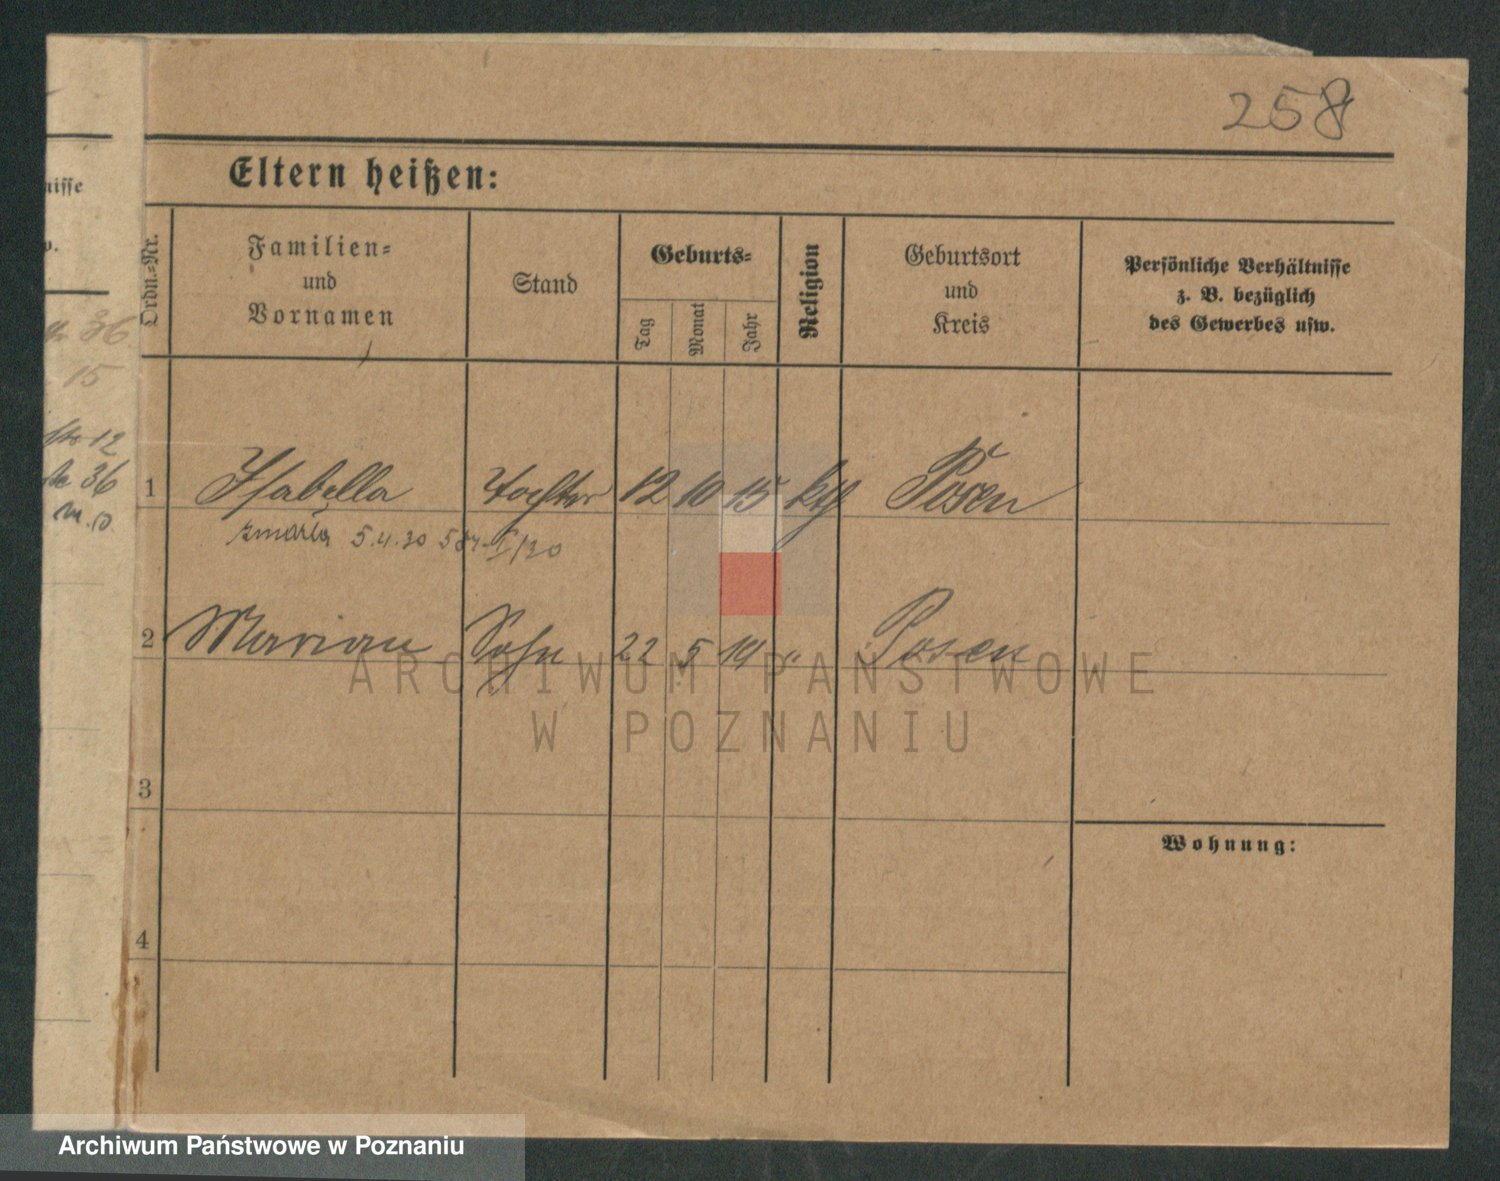 258
nisse
w.
36
15
str 12
36
Eltern heißen:
Ordn.-Nr.
Familien-
und
Vornamen
Stand
Geburts-
Tag
Monat
Jahr
Religion
Geburtsort
und
Kreis
Persönliche Verhältnisse
z. B. bezüglich
des Gewerbes usw.
1 Isabella Tochter 12 10 15 kth Posen
zmarła 5.4.20
2 Marian Sohn 22 5 19 " Posen
ARCHIWUM PAŃSTWOWE
W POZNANIU
3
Wohnung:
4
Archiwum Państwowe w Poznaniu